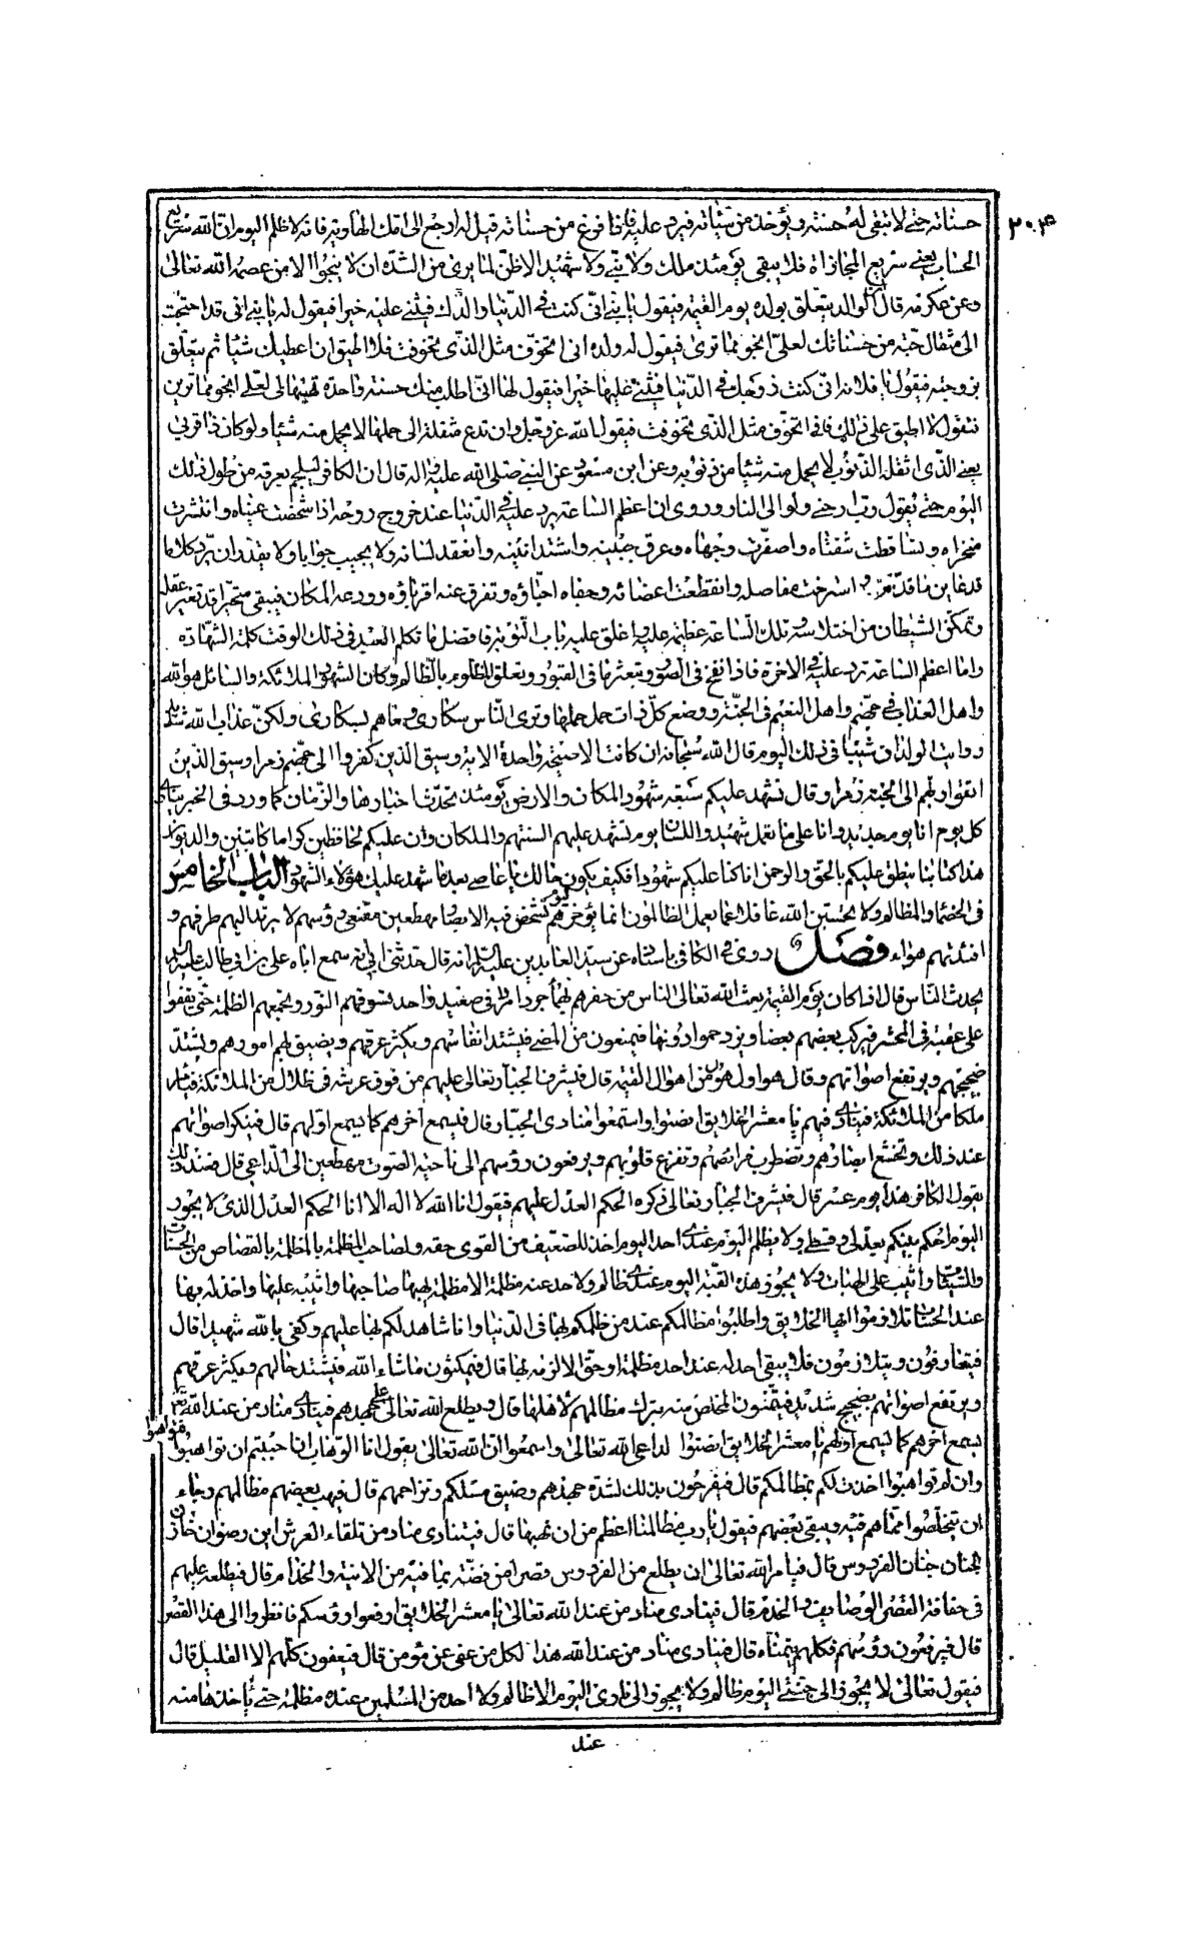 ٣٠٣
حسناته حتى لا تبقى له حسنة ويؤخذ من سيئاته فيرد عليه فاذا فرغ من حسناته قيل له ارجع الى امك الهاوية فانه لا ظلم اليوم ان الله سريع
الحساب يعنى سريع المجازاة فلا يبقى يومئذ ملك ولا نبى ولا شهيد الا ظن لما يرى من الشدة ان لا ينجوا الا من عصمه الله تعالى
وعن عكرمة قال ان الوالد يتعلق بولده يوم القيمة فيقول يا بنى انى كنت فى الدنيا والدك فيثنى عليه خيرا فيقول له يا بنى انى قد احتجت
الى مثقال حبة من حسناتك لعلى انجو مما ترى فيقول له ولده انى اتخوف مثل الذى تخوفت فلا اطيق ان اعطيك شيئا ثم يتعلق
بزوجته فيقول يا فلانة انى كنت زوجك فى الدنيا فيثنى عليها خيرا فيقول لها انى اطلب منك حسنة واحدة تهبنها لى لعلى انجو مما ترين
فتقول لا اطيق على ذلك فانى اتخوف مثل الذى تخوفت فيقول الله عز وجل وان تدع مثقلة الى حملها لا يحمل منه شيئا ولو كان ذا قربى
يعنى الذى اثقله الذنوب لا يحمل منه شيئا من ذنوبه وعن ابن مسعود عن النبى صلى الله عليه واله قال ان الكافر ليلجم بعرقه من طول ذلك
اليوم حتى يقول رب ارحنى ولو الى النار وروى ان اعظم الساعة يرد عليه فى الدنيا عند خروج روحه اذا شخصت عيناه وانتشرت
منخراه وتساقطت شفتاه واصفرت وجهاه وعرق جبينه واشتد انينه وانعقد لسانه ولا يجيب جوابا ولا يقدر ان يرد كلاما
قد عاين ما قد استرخت مفاصله وانقطعت اعضائه وجفاه احباؤه وتفرق عنه اقرباؤه وودعه المكان فيبقى متحيرا قد تغير عقله
وتمكن الشيطان من اختلاسه تلك الساعة عظيمة عليه اغلق عليه باب التوبة فافضل ما تكلم العبد فى ذلك الوقت كلمة الشهادة
واما اعظم الساعة ترد عليه فى الاخرة فاذا نفخ فى الصور وبعثر ما فى القبور وتعلق المظلوم بالظالم وكان الشهود الملائكة والسائل هو الله
واهل العذاب فى جهنم واهل النعيم فى الجنة ووضع كل ذات حمل حملها وترى الناس سكارى وما هم بسكارى ولكن عذاب الله شديد
الولدان شيبا فى ذلك اليوم قال الله سبحانه ان كانت الا صيحة واحدة الاية وسيق الذين كفروا الى جهنم زمرا وسيق الذين
اتقوا ربهم الى الجنة زمرا وقال تشهد عليكم سبعة شهود المكان والارض يومئذ تحدث اخبارها والزمان كما ورد فى الخبر ينادى
كل يوم انا يوم جديد وانا على ما تعمل شهيد واللسان يوم تشهد عليهم السنتهم والملكان وان عليكم لحافظين كراما كاتبين والديوان
هذا كتابنا ينطق عليكم بالحق والرحمن انا كنا عليكم شهودا فكيف يكون حالك يا عاصى بعد ما شهد عليك هؤلاء الشهود الباب الخامس
فى الخصماء والمظالم ولا تحسبن الله غافلا عما يعمل الظالمون انما يؤخرهم ليوم تشخص فيه الابصار مهطعين مقنعى رؤسهم لا يرتد اليهم طرفهم و
افئدتهم هواء فصل روى فى الكافى باسناده عن سيد العابدين عليه السلام انه قال حدثنى ابى انه سمع اباه على بن ابى طالب عليه السلام
يحدث الناس قال اذا كان يوم القيمة بعث الله تعالى الناس من حفرهم بهما جردا مردا فى صعيد واحد تسوقهم النور وتجمعهم الظلمة حتى يقفوا
على عقبة فى المحشر فيركب بعضهم بعضا ويزدحموا دونها فيمنعون من المضى فيشتد انفاسهم ويكثر عرقهم ويضيق بهم امورهم ويشتد
ضجيجهم ويرتفع اصواتهم وقال هو اول هول من اهوال القيمة قال فيشرف الجبار تعالى عليهم من فوق عرشه فى ظلال من الملائكة فيأمر
ملكا من الملائكة فينادى فيهم يا معشر الخلايق انصتوا واستمعوا منادى الجبار قال فيسمع اخرهم كما يسمع اولهم قال فينكسر اصواتهم
عند ذلك وتخشع ابصارهم وتضطرب فرائصهم وتفزع قلوبهم ويرفعون رؤسهم الى ناحية الصوت مهطعين الى الداعى قال فعند ذلك
يقول الكافر هذا يوم عسر قال فيشرف الجبار تعالى ذكره الحكم العدل عليهم فيقول انا الله لا اله الا انا الحكم العدل الذى لا يجور
اليوم احكم بينكم بعدلى وقسطى ولا يظلم اليوم عندى احد اليوم اخذ للضعيف من القوى حقه ولصاحب المظلمة بالمظلمة بالقصاص من الحسنات
والسيئات واثيب على الهبات ولا يجوز هذه العقبة اليوم عندى ظالم ولا احد عنده مظلمة الا مظلمة يهبها صاحبها واثيبه عليها واخذ له بها
عند الحساب فتلازموا ايها الخلايق واطلبوا مظالمكم عند من ظلمكم بها فى الدنيا وانا شاهد لكم بها عليهم وكفى بالله شهيدا قال
فيتعارفون ويتلازمون فلا يبقى احد له عند احد مظلمة او حق الا لزمه بها قال فيمكثون ما شاء الله فيشتد حالهم ويكثر عرقهم
ويرتفع اصواتهم بضجيج شديد فيتمنون المخلص منه بترك مظالمهم لاهلها قال ويطلع الله تعالى على جهدهم فينادى مناد من عند الله تع
يسمع اخرهم كما يسمع اولهم يا معشر الخلايق انصتوا لداعى الله تعالى واسمعوا ان الله تعالى يقول انا الوهاب ان احببتم ان تواهبوا فتواهبوا
وان لم تواهبوا اخذت لكم بمظالمكم قال فيفرحون بذلك لشدة جهدهم وضيق مسلكهم وتزاحمهم قال فيهب بعضهم مظالمهم رجاء
ان يتخلصوا مما هم فيه ويبقى بعضهم فيقول يا رب مظالمنا اعظم من ان نهبها قال فينادى مناد من تلقاء العرش اين رضوان خازن
الجنان جنان الفردوس قال فيأمر الله تعالى ان يطلع من الفردوس قصرا من فضة بما فيه من الابنية والخدام قال فيطلعه عليهم
فى حفافة القصر الوصايف والخدم قال فينادى مناد من عند الله تعالى يا معشر الخلايق ارفعوا رؤسكم فانظروا الى هذا القصر
قال فيرفعون رؤسهم فكلهم يتمناه قال فينادى مناد من عند الله هذا لكل من عفى عن مؤمن قال فيعفون كلهم الا القليل قال
فيقول تعالى لا يجوز الى جنتى اليوم ظالم ولا يجوز الى نارى اليوم الا ظالم ولا احد من المسلمين عنده مظلمة حتى يأخذها منه
عند